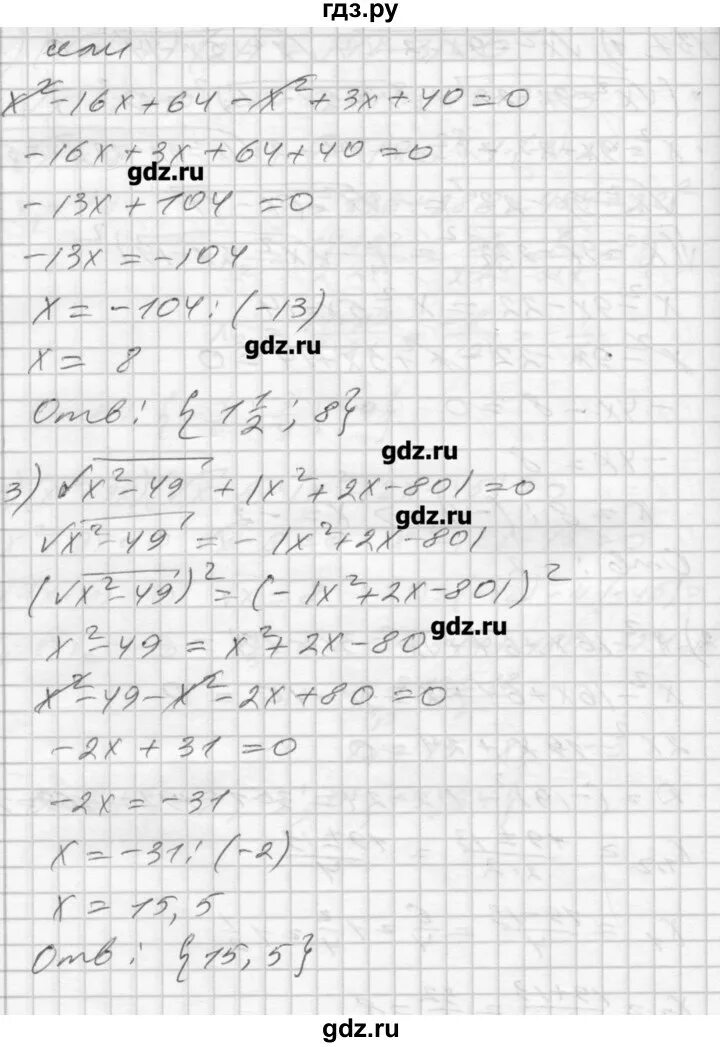 гдз.ру
или
x² - 16x + 64 - x² + 3x + 40 = 0
-16x + 3x + 64 + 40 = 0
gdz.ru
-13x + 104 = 0
-13x = -104
x = -104 : (-13)
gdz.ru
x = 8
Отв: {1 1/2 ; 8}
gdz.ru
3) √(x² - 49) + |x² + 2x - 80| = 0
gdz.ru
√(x² - 49) = - |x² + 2x - 80|
(√(x² - 49))² = (- |x² + 2x - 80|)²
gdz.ru
x² - 49 = x² + 2x - 80
x² - 49 - x² - 2x + 80 = 0
-2x + 31 = 0
-2x = -31
x = -31 : (-2)
x = 15,5
Отв: {15,5}
gdz.ru